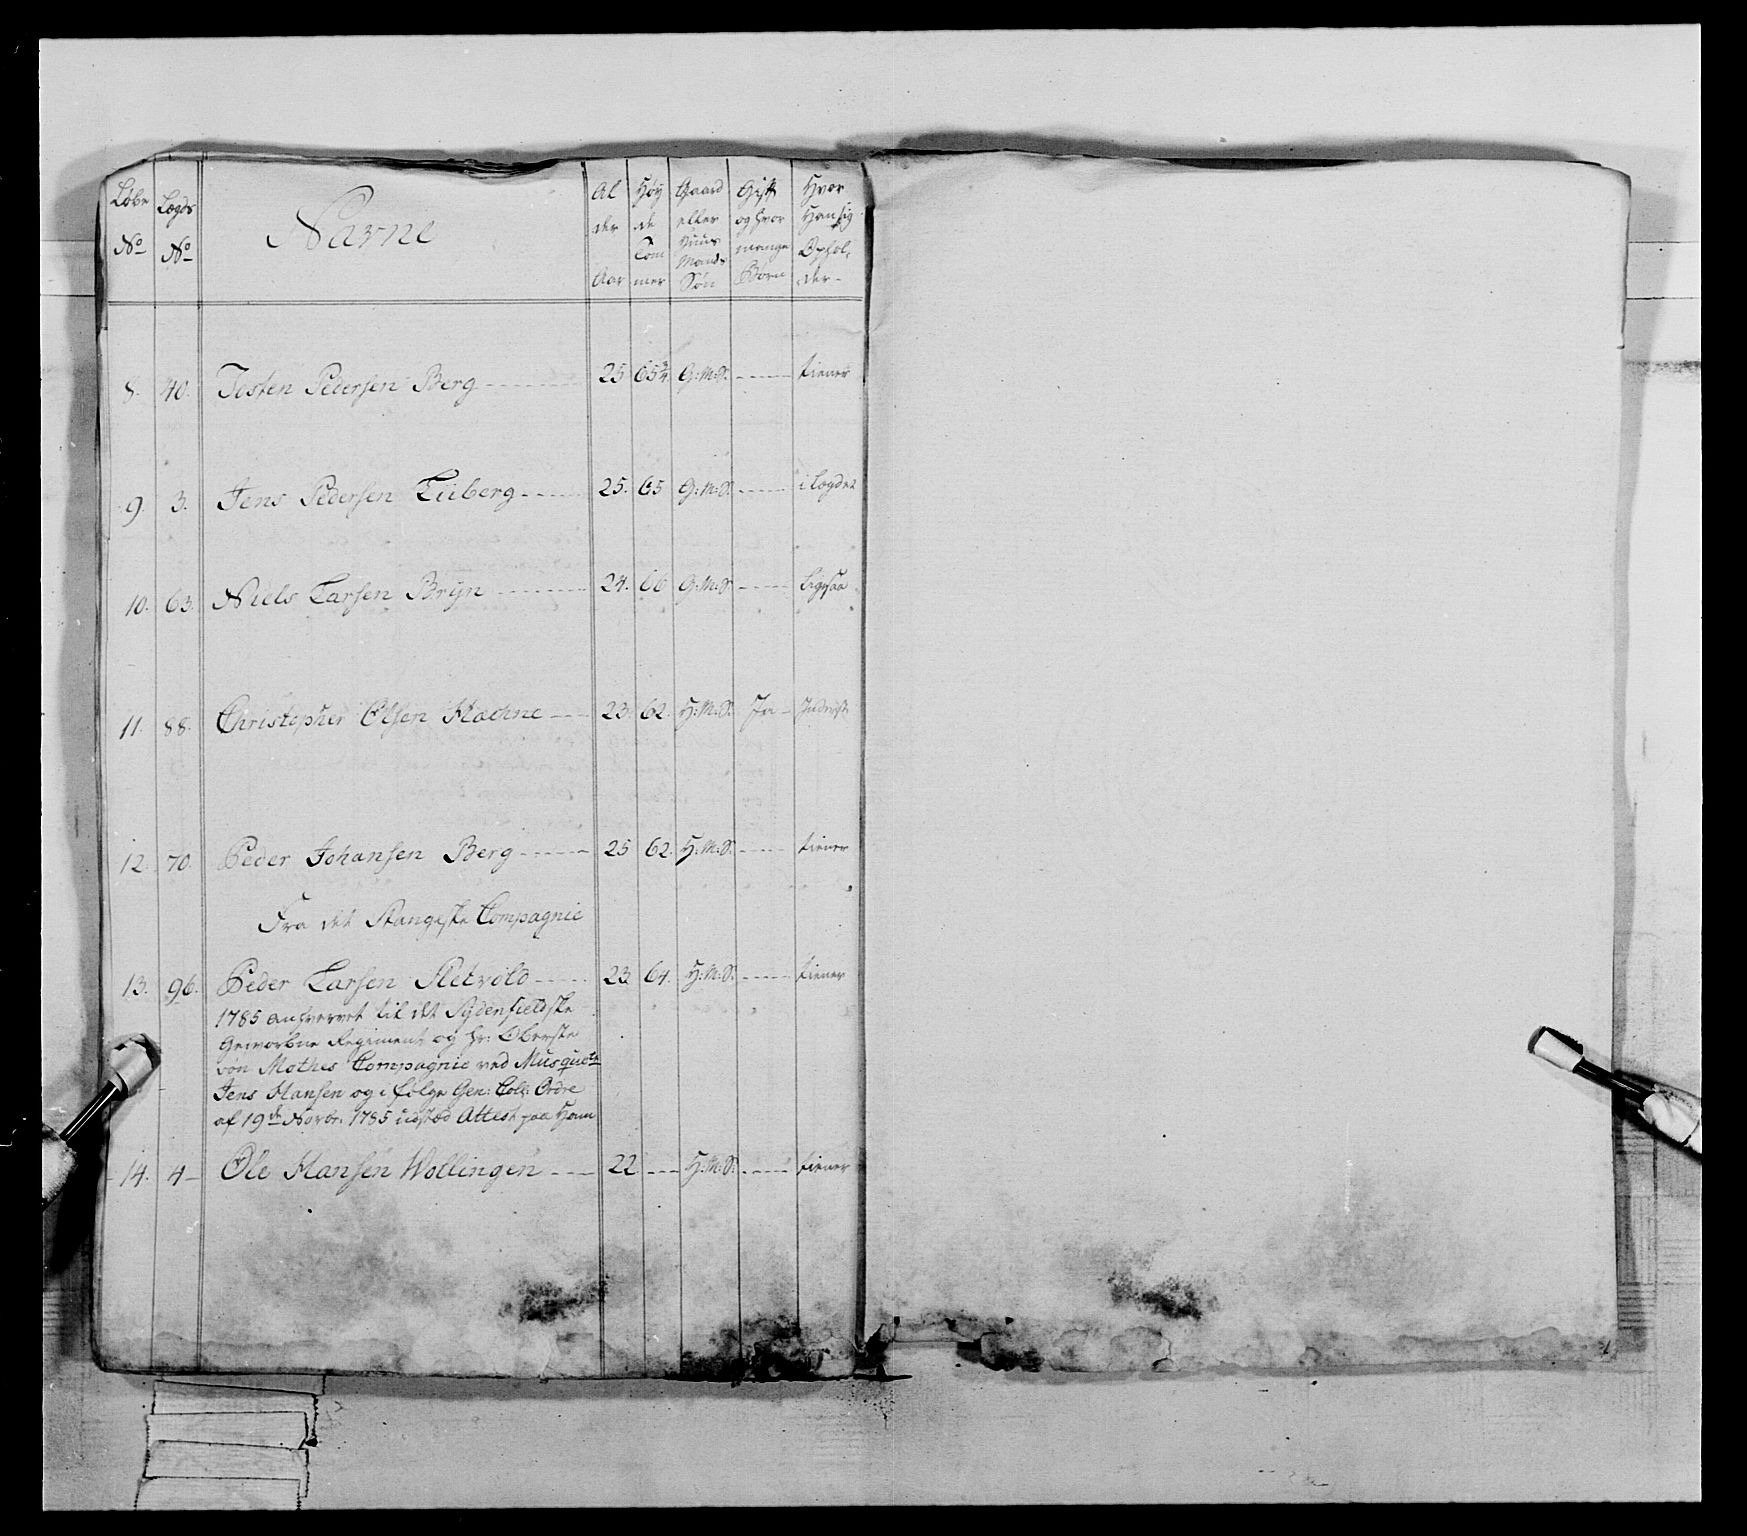 Løbe No | Lægds No | Navne | Alder Aar | Høyde Tommer | Gaard eller Huus Mands Søn | Gift og hvor mange Børn | Hvor Han sig Ophol,der
8. 40. Tosten Pedersen Berg 25 65¼ G:M:S. tiener
9. 3. Jens Pedersen Luberg 25. 65 G:M:S. i Lægdet
10. 63. Niels Larsen Bryn 24. 66 G:M:S ligesaa
11. 88. Christopher Olsen Hachne 23. 62. H:M:S. Ja
12. 70. Peder Johansen Berg 25 62. H:M:S. tiener
Fra det Stangeske Compagnie
13. 96. Peder Larsen Sletvold 23. 64. H:M:S. tiener
1785 anhvervet til det Sydenfieldske
Geworbne Regiment og Hr: Oberste
von Mothes Compagnie ved Musquetr
Jens Hansen og i følge Gen: Coll: Ordre
af 19de Novbr: 1785 udstæd Attest paa Ham
14. 4 Ole Hansen Wollingen 22 H:M:S. tiener